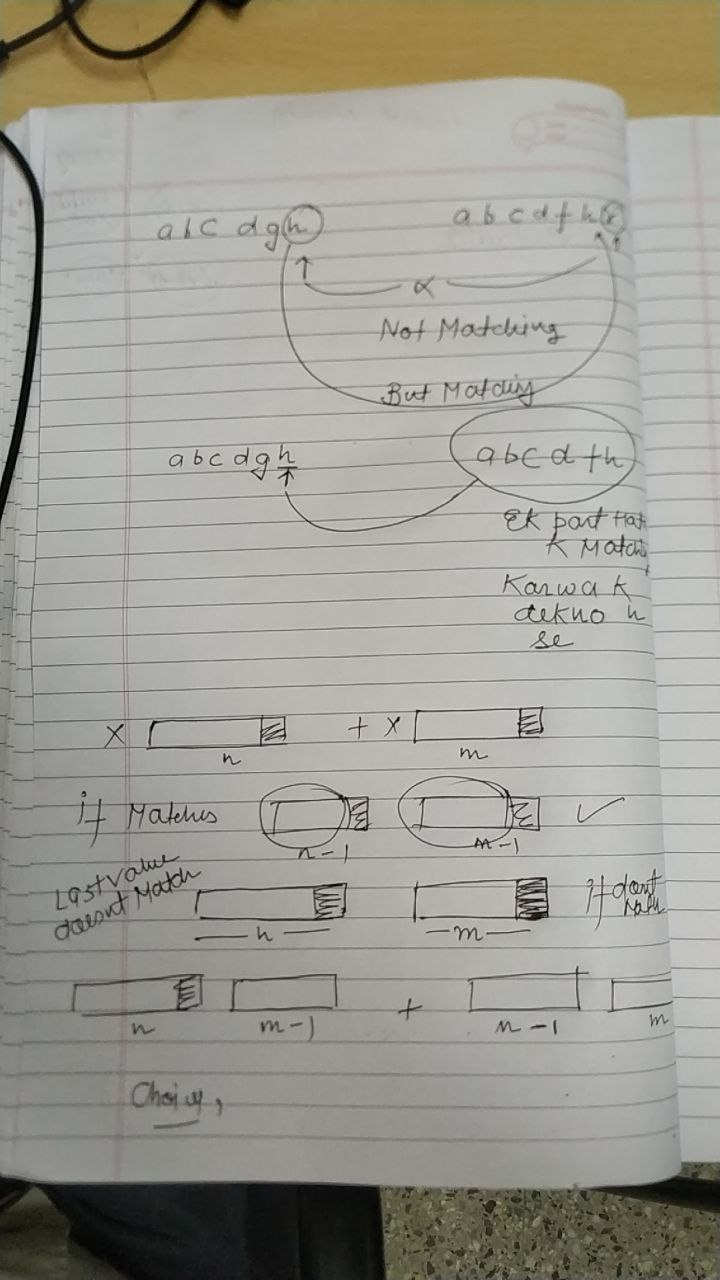 abc dgh abcdfhr
α
Not Matching
But Matching
abcdgh abcdfh
Ek part Hata
K Match
Karwa k
dekho h
se
X + X
n m
if Matches ✓
n-1 m-1
Last value
doesnt Match if dont
Match
n m
+
n m-1 n-1 m
Choices,